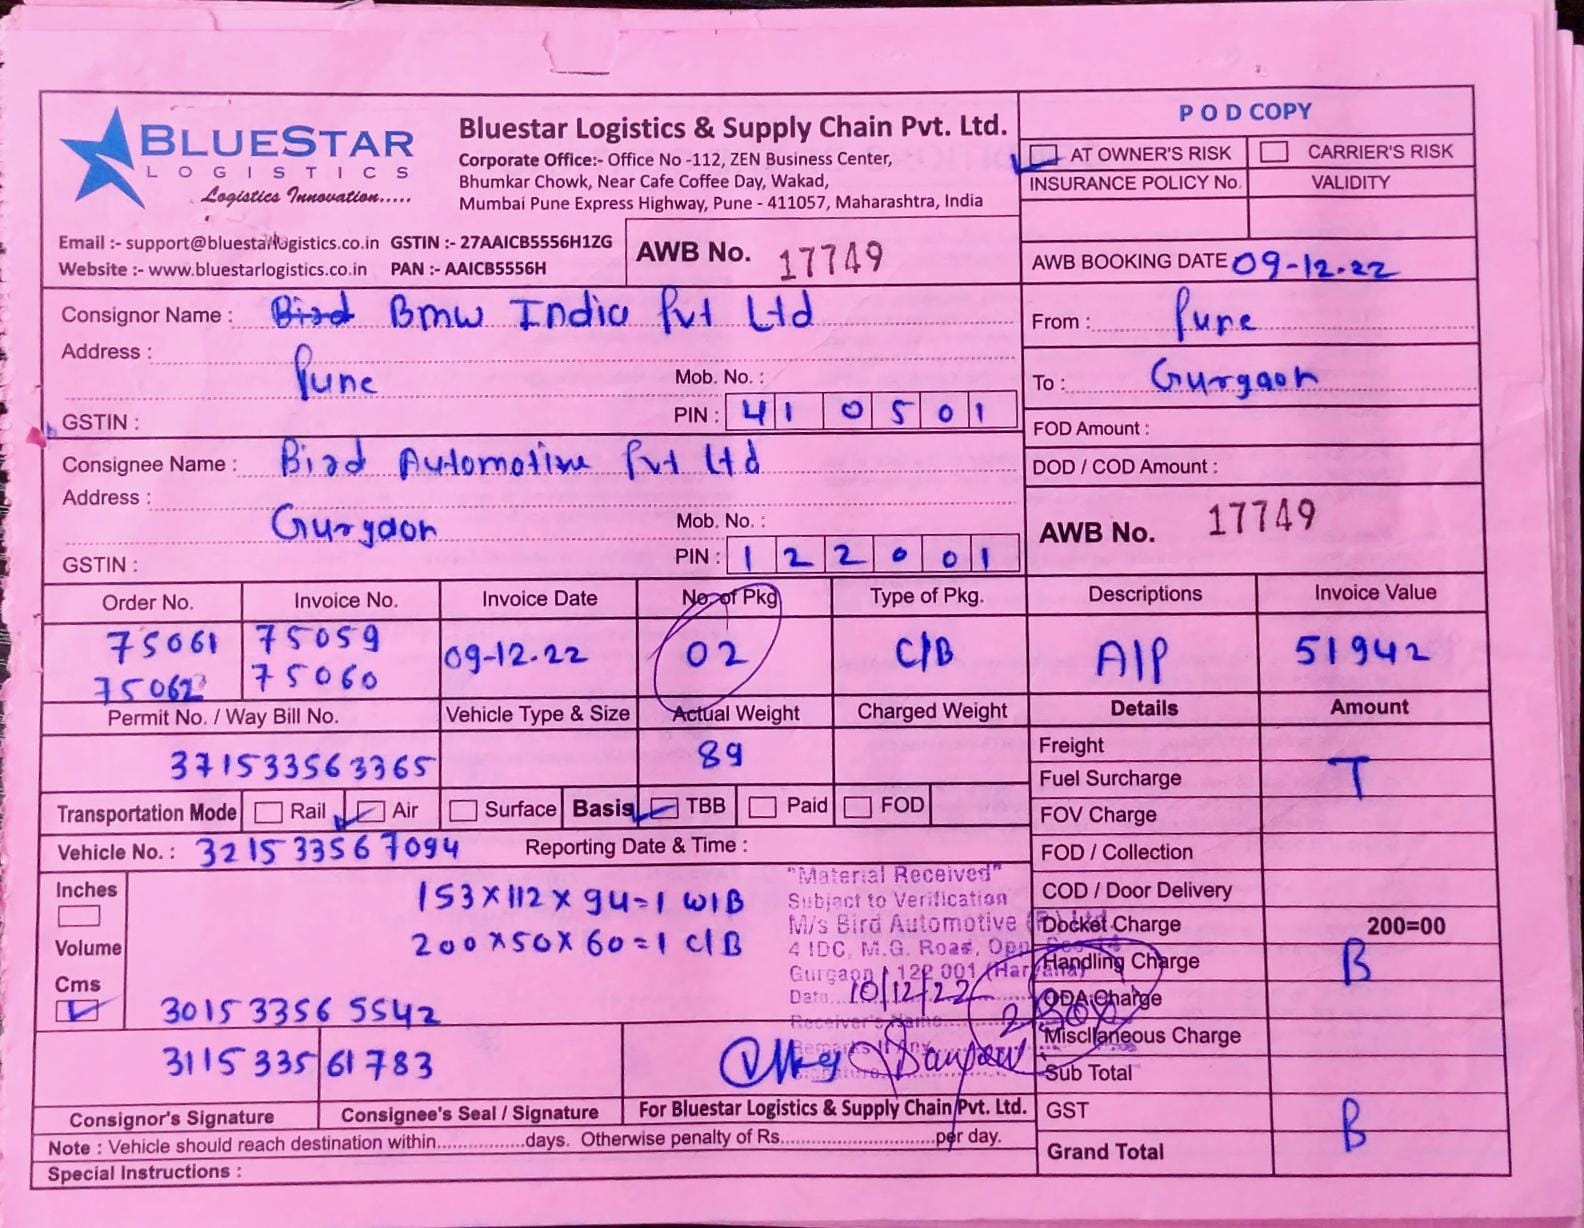 BLUESTAR
LOGISTICS
Logistics Innovation.....
Bluestar Logistics & Supply Chain Pvt. Ltd.
Corporate Office:- Office No -112, ZEN Business Center,
Bhumkar Chowk, Near Cafe Coffee Day, Wakad,
Mumbai Pune Express Highway, Pune - 411057, Maharashtra, India
Email :- support@bluestarlogistics.co.in GSTIN :- 27AAICB5556H1ZG
Website :- www.bluestarlogistics.co.in PAN :- AAICB5556H
AWB No. 17749
POD COPY
AT OWNER'S RISK CARRIER'S RISK
INSURANCE POLICY No. VALIDITY
AWB BOOKING DATE 09-12-22
Consignor Name : Bird Bmw India Pvt Ltd
Address :
Pune
Mob. No. :
GSTIN : PIN : 410501
From : Pune
To : Gurgaon
FOD Amount :
DOD / COD Amount :
Consignee Name : Bird Automotive Pvt Ltd
Address :
Gurgaon
Mob. No. :
GSTIN : PIN : 122001
AWB No. 17749
Order No. Invoice No. Invoice Date No. of Pkg Type of Pkg. Descriptions Invoice Value
75061 75059 09-12-22 02 C/B A/P 51942
75062 75060
Permit No. / Way Bill No. Vehicle Type & Size Actual Weight Charged Weight Details Amount
371533563365 89
Freight
Fuel Surcharge T
Transportation Mode Rail Air Surface Basis TBB Paid FOD
FOV Charge
Vehicle No. : 321533567094 Reporting Date & Time :
FOD / Collection
Inches
Volume
Cms
153x112x94=1 W/B
200x50x60=1 C/B
301533565542
311533561783
"Material Received"
Subject to Verification
M/s Bird Automotive
4 IDC, M.G. Road, Opp.
Gurgaon 122 001 (Haryana)
Date...10/12/22
Receiver's Name
Remarks If Any
COD / Door Delivery
Docket Charge 200=00
Handling Charge B
ODA Charge
Miscllaneous Charge
Sub Total
GST B
Grand Total
Consignor's Signature Consignee's Seal / Signature For Bluestar Logistics & Supply Chain Pvt. Ltd.
Note : Vehicle should reach destination within.................days. Otherwise penalty of Rs..............................per day.
Special Instructions :